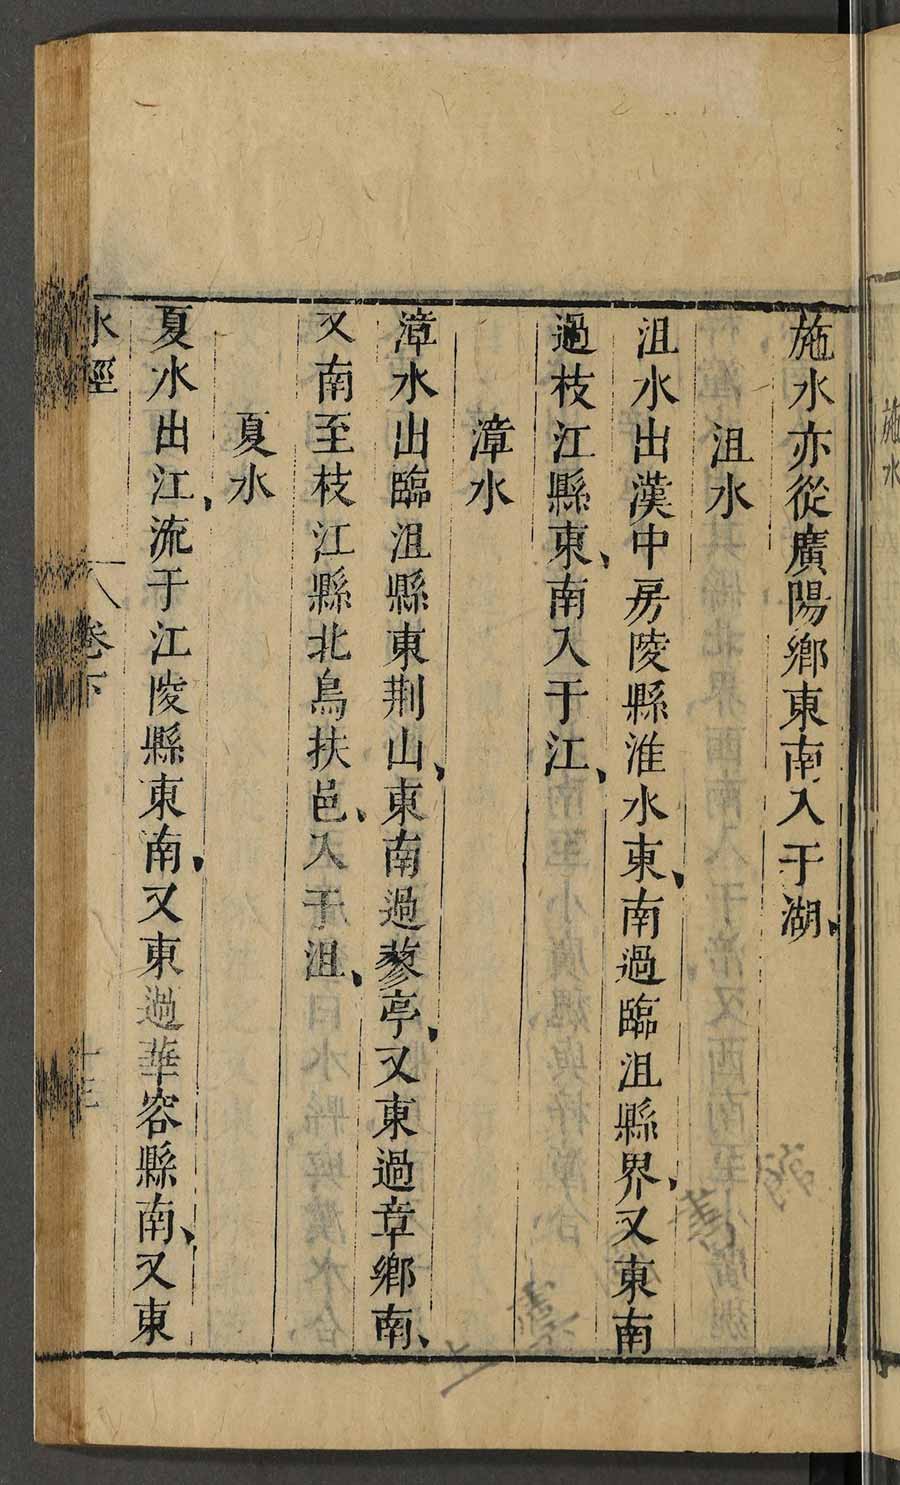 施水
施水亦從廣陽鄉東南入于湖、
沮水
沮水出漢中房陵縣淮水東、南過臨沮縣界、又東南
過枝江縣東、南入于江、
漳水
漳水出臨沮縣東荆山、東南過蓼亭、又東過章鄉南、
又南至枝江縣北烏扶邑、入于沮、
夏水
夏水出江、流于江陵縣東南、又東過華容縣南、又東
水經 卷下 十三